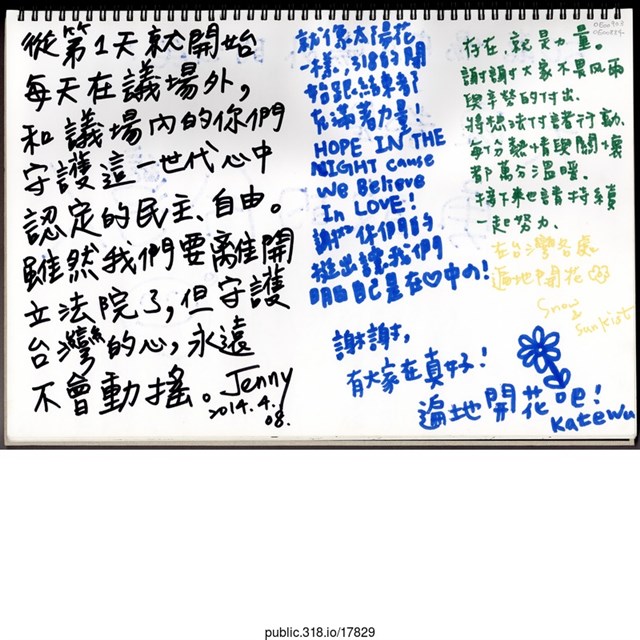 從第1天就開始
每天在議場外，
和議場內的你們
守護這一世代心中
認定的民主、自由。
雖然我們要離開
立法院了，但守護
台灣的心，永遠
不會動搖。Jenny
2014.4.
08.
就像太陽花
一樣，318的開
始跟結束都
充滿著力量！
HOPE IN THE
NIGHT cause
We Believe
In LOVE!
謝謝你們的
挺出讓我們
明白自己是在♡中の！
謝謝，
有大家在真好！
遍地開花吧！
Katewu
存在，就是力量。
謝謝大家不畏風雨
與辛勞的付出。
將想法付諸行動，
每份熱情與關懷
都萬分溫暖。
接下來也請持續
一起努力。
在台灣各處
遍地開花
Snow
&
Sunkist
public.318.io/17829